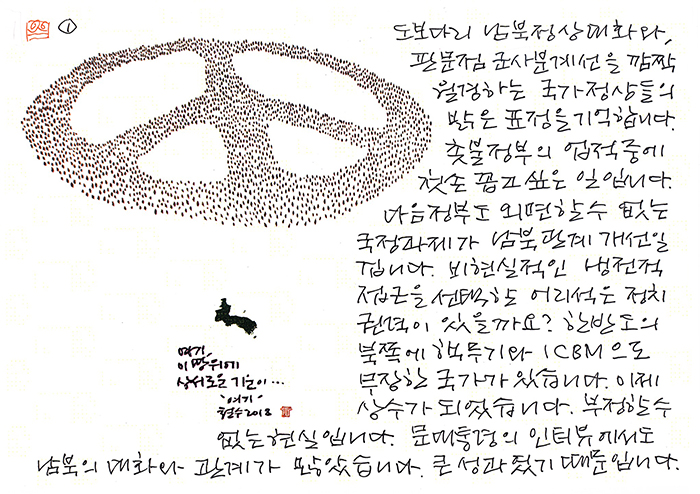 ①
도보다리 남북정상대화와,
판문점 군사분계선을 깜짝
월경하는 국가정상들의
밝은 표정을 기억합니다.
촛불정부의 업적중에
첫손 꼽고 싶은 일입니다.
다음정부도 외면할 수 없는
국정과제가 남북관계 개선일
겁니다. 비현실적인 냉전적
접근을 선택할 어리석은 정치
권력이 있을까요? 한반도의
북쪽에 핵무기와 ICBM으로
무장한 국가가 있습니다. 이제
상수가 되었습니다. 부정할 수
없는 현실입니다. 문대통령의 인터뷰에서도
남북의 대화와 관계가 많았습니다. 큰 성과였기 때문입니다.
여기,
이 땅위에
상서로운 기운이…
'여기'
철수 2018